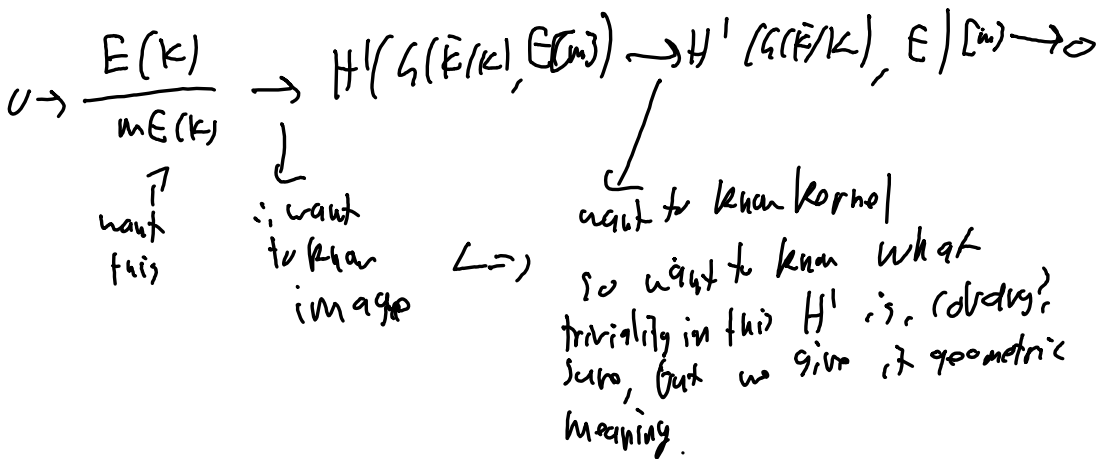 0 → E(K) / mE(K) → H¹(G(K̄/K), E[m]) → H¹(G(K̄/K), E)[m] → 0
want this
∴ want to know image
<=>
want to know kernel
so want to know what
triviality in this H¹ is. Cobdary?
Sure, but we give it geometric
meaning.